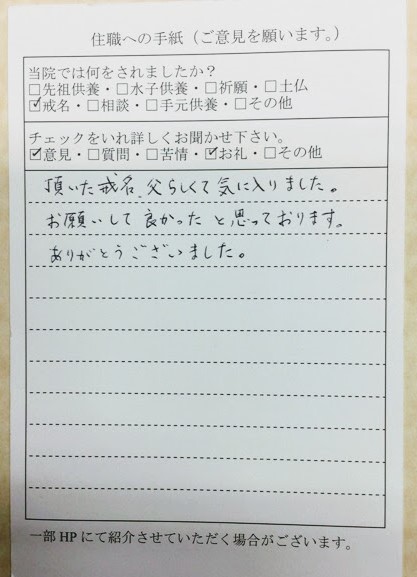 住職への手紙（ご意見を願います。）
当院では何をされましたか？
□先祖供養・□水子供養・□祈願・□土仏
☑戒名・□相談・□手元供養・□その他
チェックをいれ詳しくお聞かせ下さい。
☑意見・□質問・□苦情・☑お礼・□その他
頂いた戒名、父らしくて気に入りました。
お願いして良かったと思っております。
ありがとうございました。
一部HPにて紹介させていただく場合がございます。